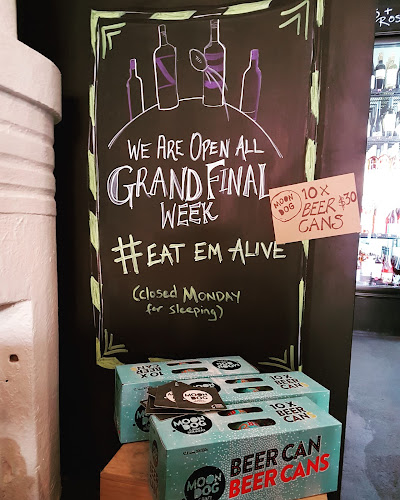 WE ARE OPEN ALL
GRAND FINAL
WEEK
#EAT EM ALIVE
(CLOSED MONDAY
for sleeping)
MOON
DOG
10 x
BEER
CANS
$30
10 X
BEER
CANS
MOON
DOG
MOON
DOG
10 X
BEER
CANS
MOON
DOG
BEER CAN
BEER CANS